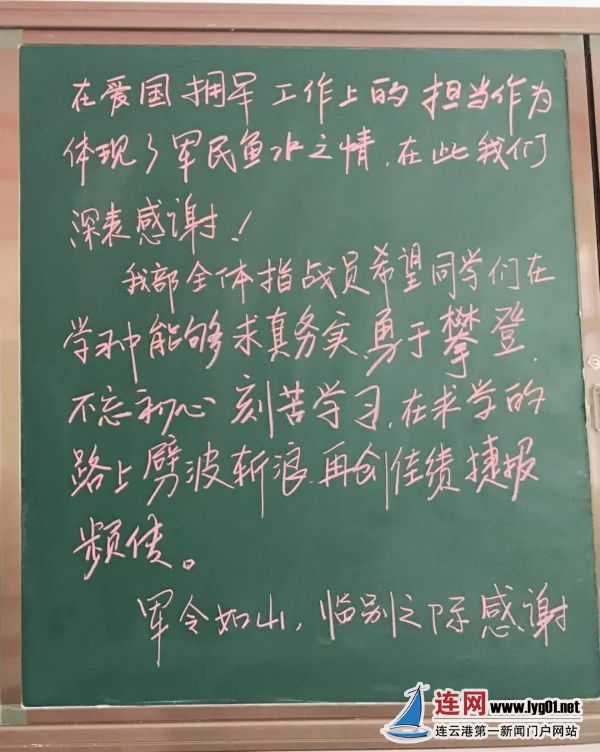 在爱国拥军工作上的担当作为
体现了军民鱼水之情,在此我们
深表感谢!
我部全体指战员希望同学们在
学习中能够求真务实 勇于攀登.
不忘初心 刻苦学习,在求学的
路上劈波斩浪.再创佳绩 捷报
频传。
军令如山,临别之际感谢
连网 www.lyg01.net
连云港第一新闻门户网站